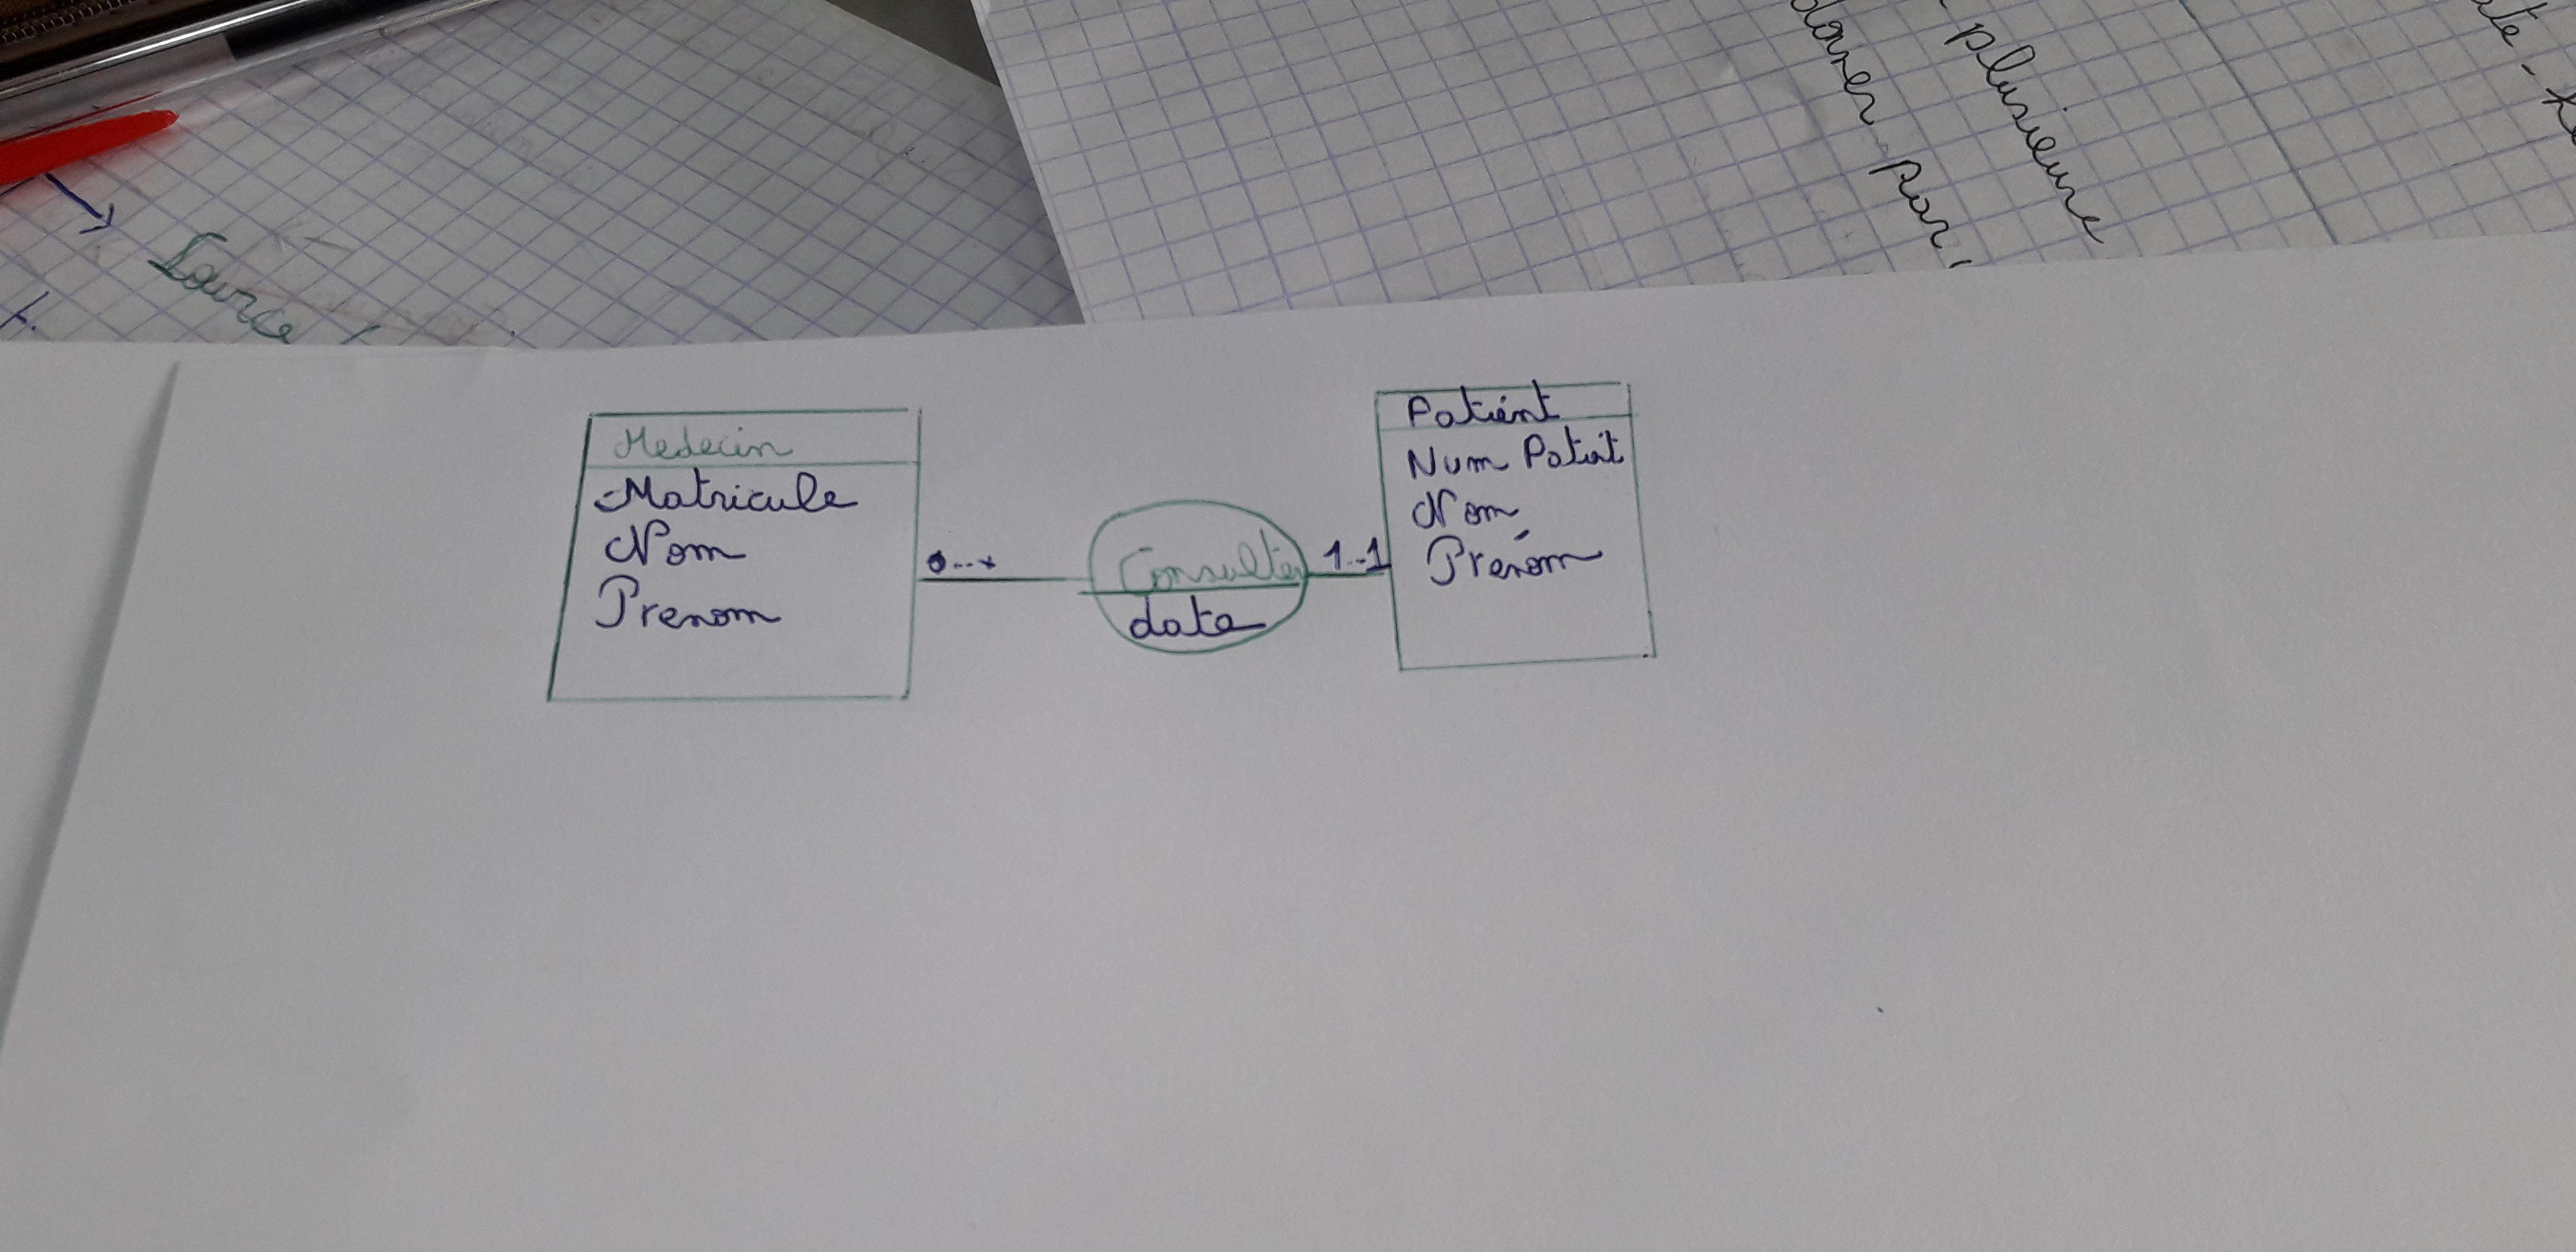 Source
plusieure
Par
Medecin
Matricule
Nom
Prenom
0..*
Consulter
date
1..1
Patient
Num Patit
Nom
Prénom